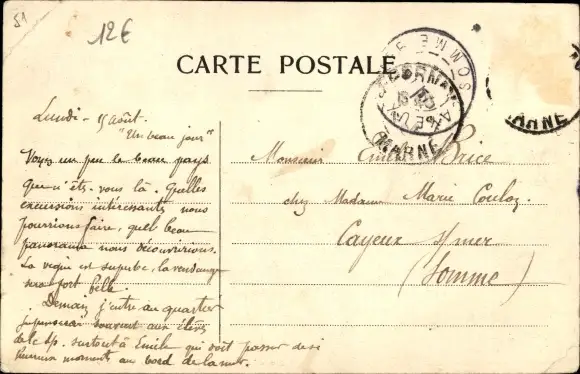 51
12€
CARTE POSTALE
SOMME
EPERNAY
MARNE
MARNE
Lundi - 15 Août.
"Un beau jour"
Voyez un peu le beau pays
Que n'êtes-vous là. Quelles
excursions intéressantes nous
pourrions faire, quel beau
panorama nous découvririons.
La vigne est superbe, la vendange
sera fort belle.
Demain j'entre au quartier
je penserai souvent aux élèves
de la Sp. surtout à Emile qui doit passer de si
heureux moments au bord de la mer.
Monsieur Emile Brice
chez Madame Marie Couloz.
Cayeux s/mer
(Somme)